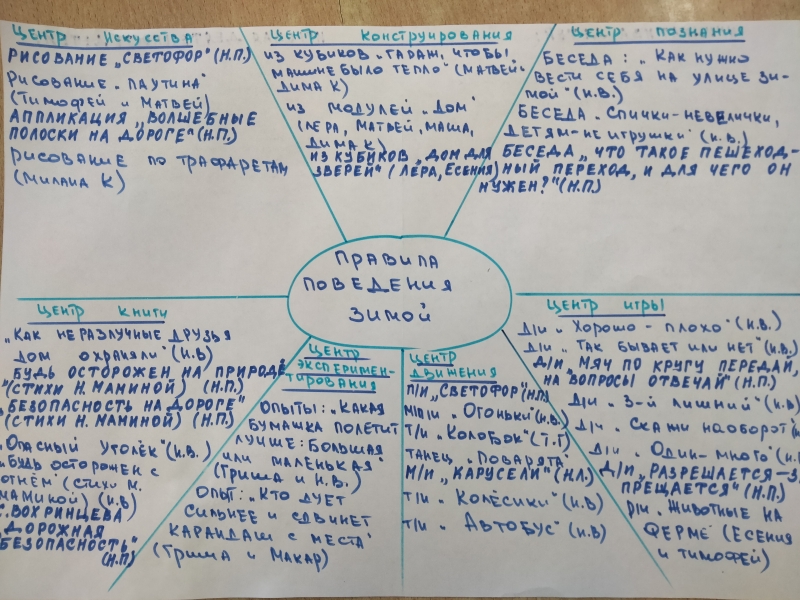 ЦЕНТР ИСКУССТВА
РИСОВАНИЕ „СВЕТОФОР" (Н.П.)
РИСОВАНИЕ „ПАУТИНА"
(ТИМОФЕЙ И МАТВЕЙ)
АППЛИКАЦИЯ „ВОЛШЕБНЫЕ
ПОЛОСКИ НА ДОРОГЕ" (Н.П.)
РИСОВАНИЕ ПО ТРАФАРЕТАМ
(МИЛАНА К)
ЦЕНТР КОНСТРУИРОВАНИЯ
ИЗ КУБИКОВ „ГАРАЖ, ЧТОБЫ
МАШИНЕ БЫЛО ТЕПЛО" (МАТВЕЙ,
ДИМА К)
ИЗ МОДУЛЕЙ „ДОМ"
(ЛЕРА, МАТВЕЙ, МАША,
ДИМА К)
ИЗ КУБИКОВ „ДОМ ДЛЯ
ЗВЕРЕЙ" (ЛЕРА, ЕСЕНИЯ)
ЦЕНТР ПОЗНАНИЯ
БЕСЕДА: „КАК НУЖНО
ВЕСТИ СЕБЯ НА УЛИЦЕ ЗИ-
МОЙ" (Н.В.)
БЕСЕДА „СПИЧКИ-НЕВЕЛИЧКИ,
ДЕТЯМ-НЕ ИГРУШКИ" (Н.В.)
БЕСЕДА „ЧТО ТАКОЕ ПЕШЕХОД-
НЫЙ ПЕРЕХОД, И ДЛЯ ЧЕГО ОН
НУЖЕН?" (Н.П.)
ПРАВИЛА
ПОВЕДЕНИЯ
ЗИМОЙ
ЦЕНТР КНИГИ
„КАК НЕРАЗЛУЧНЫЕ ДРУЗЬЯ
ДОМ ОХРАНЯЛИ" (Н.В)
БУДЬ ОСТОРОЖЕН НА ПРИРОДЕ
"(СТИХИ Н. МАМИНОЙ) (Н.П.)
„БЕЗОПАСНОСТЬ НА ДОРОГЕ"
(СТИХИ Н. МАМИНОЙ) (Н.П.)
„ОПАСНЫЙ УГОЛЁК" (Н.В.)
„БУДЬ ОСТОРОЖЕН С
ОГНЁМ" (СТИХИ Н.
МАМИНОЙ) (Н.В)
С. ВОХРИНЦЕВА
„ДОРОЖНАЯ
БЕЗОПАСНОСТЬ"
(Н.П)
ЦЕНТР
ЭКСПЕРИМЕН-
ТИРОВАНИЯ
ОПЫТЫ: „КАКАЯ
БУМАЖКА ПОЛЕТИТ
ЛУЧШЕ: БОЛЬШАЯ
ИЛИ МАЛЕНЬКАЯ"
(ГРИША И Н.В.)
ОПЫТ: „КТО ДУЕТ
СИЛЬНЕЕ И СДВИНЕТ
КАРАНДАШ С МЕСТА"
(ГРИША И МАКАР)
ЦЕНТР
ДВИЖЕНИЯ
П/И „СВЕТОФОР" (Н.П)
М/П/И „ОГОНЬКИ" (Н.В.)
Т/И „КОЛОБОК" (Т.Г)
ТАНЕЦ „ПОВАРЯТА"
М/И „КАРУСЕЛИ" (Н.П.)
Т/И „КОЛЁСИКИ" (Н.В)
Т/И „АВТОБУС" (Н.В)
ЦЕНТР ИГРЫ
Д/И „ХОРОШО - ПЛОХО" (Н.В.)
Д/И „ТАК БЫВАЕТ ИЛИ НЕТ" (Н.В.)
Д/И „МЯЧ ПО КРУГУ ПЕРЕДАЙ,
НА ВОПРОСЫ ОТВЕЧАЙ" (Н.П.)
Д/И „3-Й ЛИШНИЙ" (Н.В)
Д/И „СКАЖИ НАОБОРОТ"
Д/И „ОДИН-МНОГО" (Н.В.)
Д/И „РАЗРЕШАЕТСЯ-ЗА
ПРЕЩАЕТСЯ" (Н.П.)
Р/И „ЖИВОТНЫЕ НА
ФЕРМЕ" (ЕСЕНИЯ
И ТИМОФЕЙ)